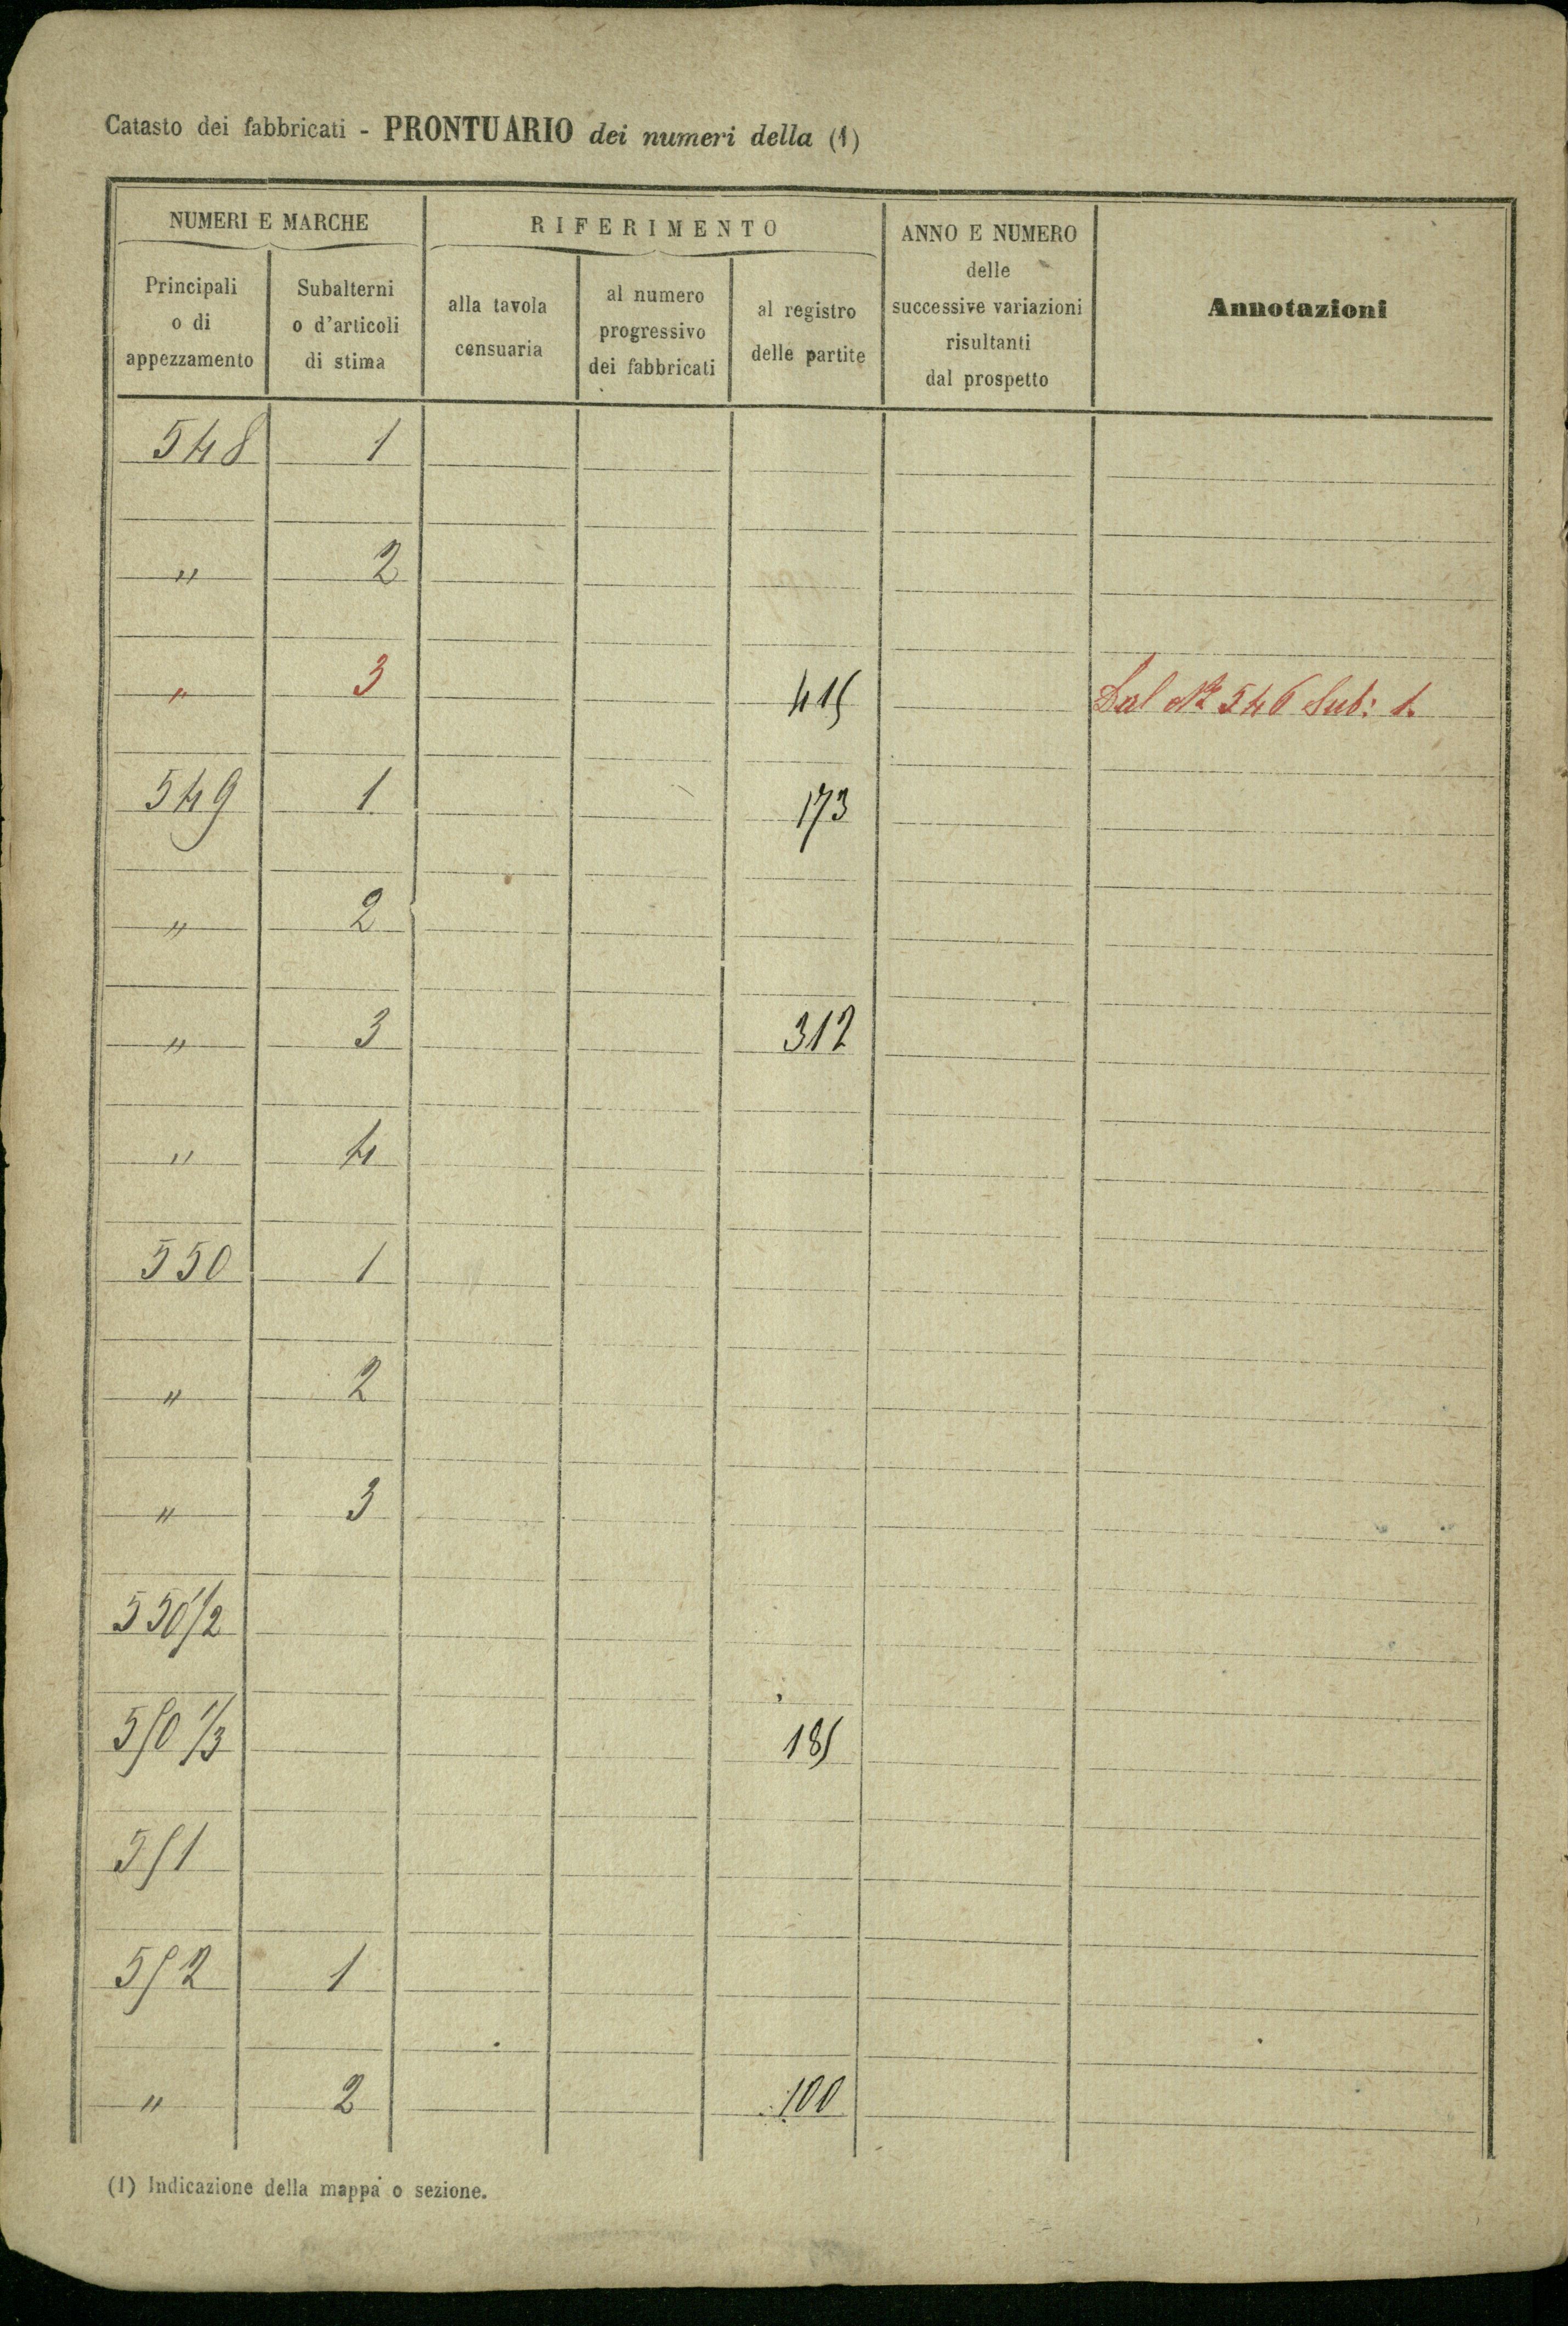 Catasto dei fabbricati - PRONTUARIO dei numeri della (1)
NUMERI E MARCHE
RIFERIMENTO
ANNO E NUMERO
delle
successive variazioni
risultanti
dal prospetto
Annotazioni
Principali
o di
appezzamento
Subalterni
o d'articoli
di stima
alla tavola
censuaria
al numero
progressivo
dei fabbricati
al registro
delle partite
548 1
" 2
" 3 415 Dal N° 546 Sub: 1.
549 1 173
" 2
" 3 312
" 4
550 1
" 2
" 3
550 1/2
550 1/3 185
551
552 1
" 2 100
(1) Indicazione della mappa o sezione.